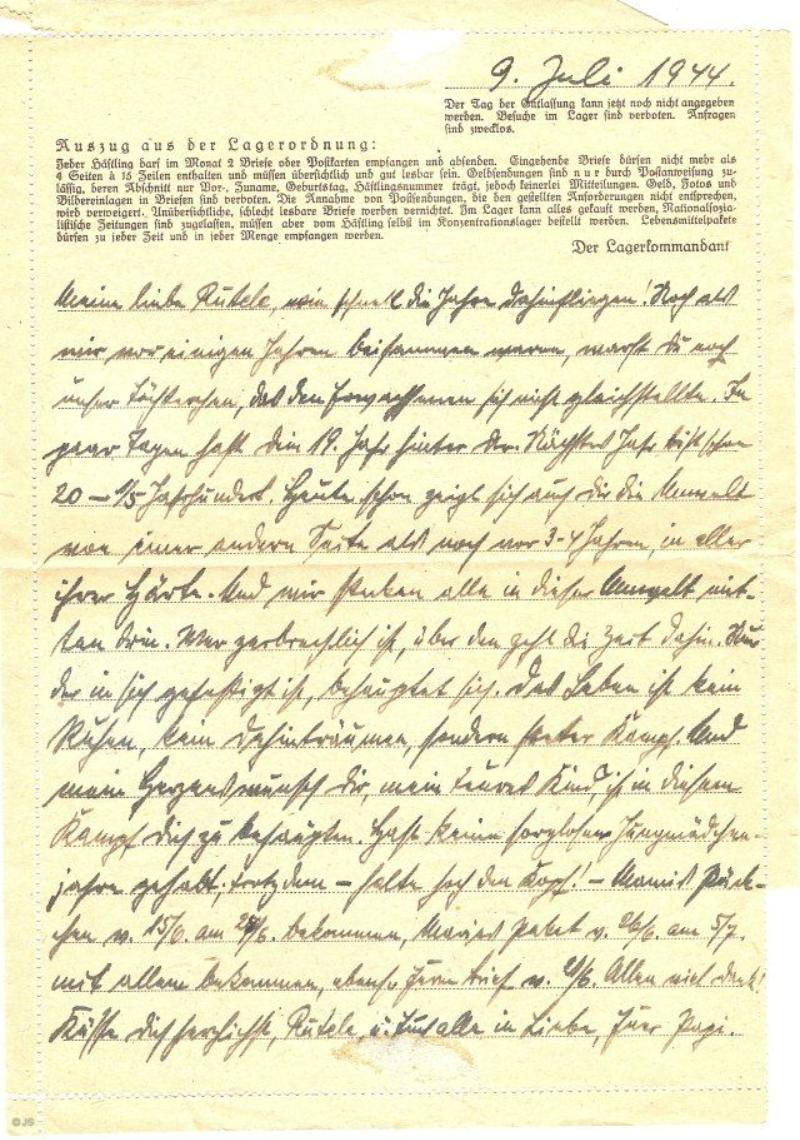 9. Juli 1944.
Der Tag der Entlassung kann jetzt noch nicht angegeben
werden. Besuche im Lager sind verboten. Anfragen
sind zwecklos.
Auszug aus der Lagerordnung:
Jeder Häftling darf im Monat 2 Briefe oder Postkarten empfangen und absenden. Eingehende Briefe dürfen nicht mehr als
4 Seiten à 15 Zeilen enthalten und müssen übersichtlich und gut lesbar sein. Geldsendungen sind nur durch Postanweisung zu-
lässig, deren Abschnitt nur Vor-, Zuname, Geburtstag, Häftlingsnummer trägt, jedoch keinerlei Mitteilungen. Geld, Fotos und
Bildereinlagen in Briefen sind verboten. Die Annahme von Postsendungen, die den gestellten Anforderungen nicht entsprechen,
wird verweigert. Unübersichtliche, schlecht lesbare Briefe werden vernichtet. Im Lager kann alles gekauft werden, Nationalsozia-
listische Zeitungen sind zugelassen, müssen aber vom Häftling selbst im Konzentrationslager bestellt werden. Lebensmittelpakete
dürfen zu jeder Zeit und in jeder Menge empfangen werden.
Der Lagerkommandant
Meine liebe Rutele, wie schnell die Jahre dahinfliegen! Noch als
wir vor einigen Jahren beisammen waren, warst Du noch
unser Töchterchen, das den Erwachsenen sich nicht gleichstellte. In
paar Tagen hast Dein 19. Jahr hinter Dir. Nächstes Jahr bist schon
20 – 1/5 Jahrhundert. Heute schon zeigt sich auch Dir die Umwelt
von einer andern Seite als noch vor 3-4 Jahren, in aller
ihrer Härte. Und wir stecken alle in dieser Umwelt mit-
ten drin. Wer zerbrechlich ist, über den geht die Zeit dahin. Nur
der in sich gefestigt ist, behauptet sich. Das Leben ist kein
Ruhen, kein Dahinträumen, sondern steter Kampf. Und
mein Herzenswunsch Dir, mein teures Kind, ist in diesem
Kampf Dich zu behaupten. Hast keine sorglosen Jungmädchen-
jahre gehabt, trotzdem – halte hoch den Kopf! – Mamis Päck-
chen v. 15/6. am bekommen, Pakets v. 26/6. am 5/7.
mit allem bekommen, ebenso Euren Brief v. Allen viel Dank!
Küsse Dich herzlichst, Rutele, u. Euch alle in Liebe, Euer Papi.
©JS